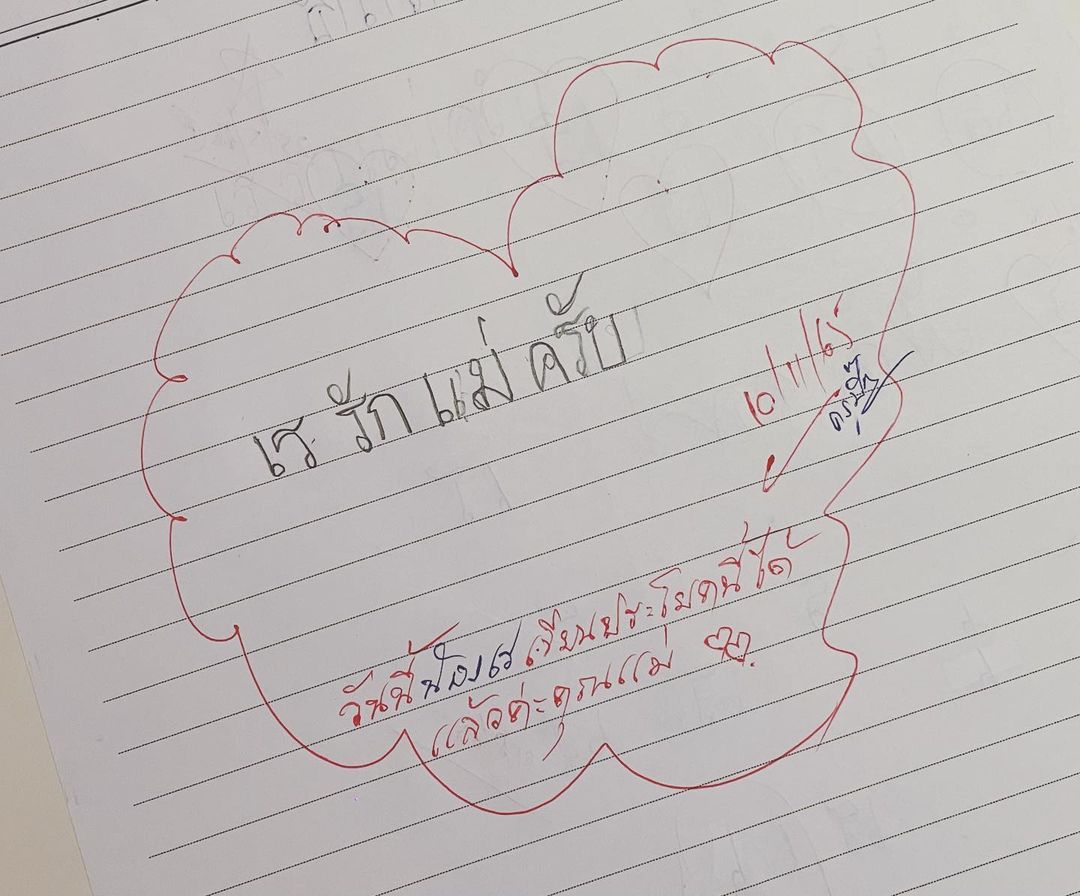 เร รักแม่ ครับ
10/11/65
วันนี้น้องเรเขียนประโยคนี้ได้
แล้วค่ะคุณแม่